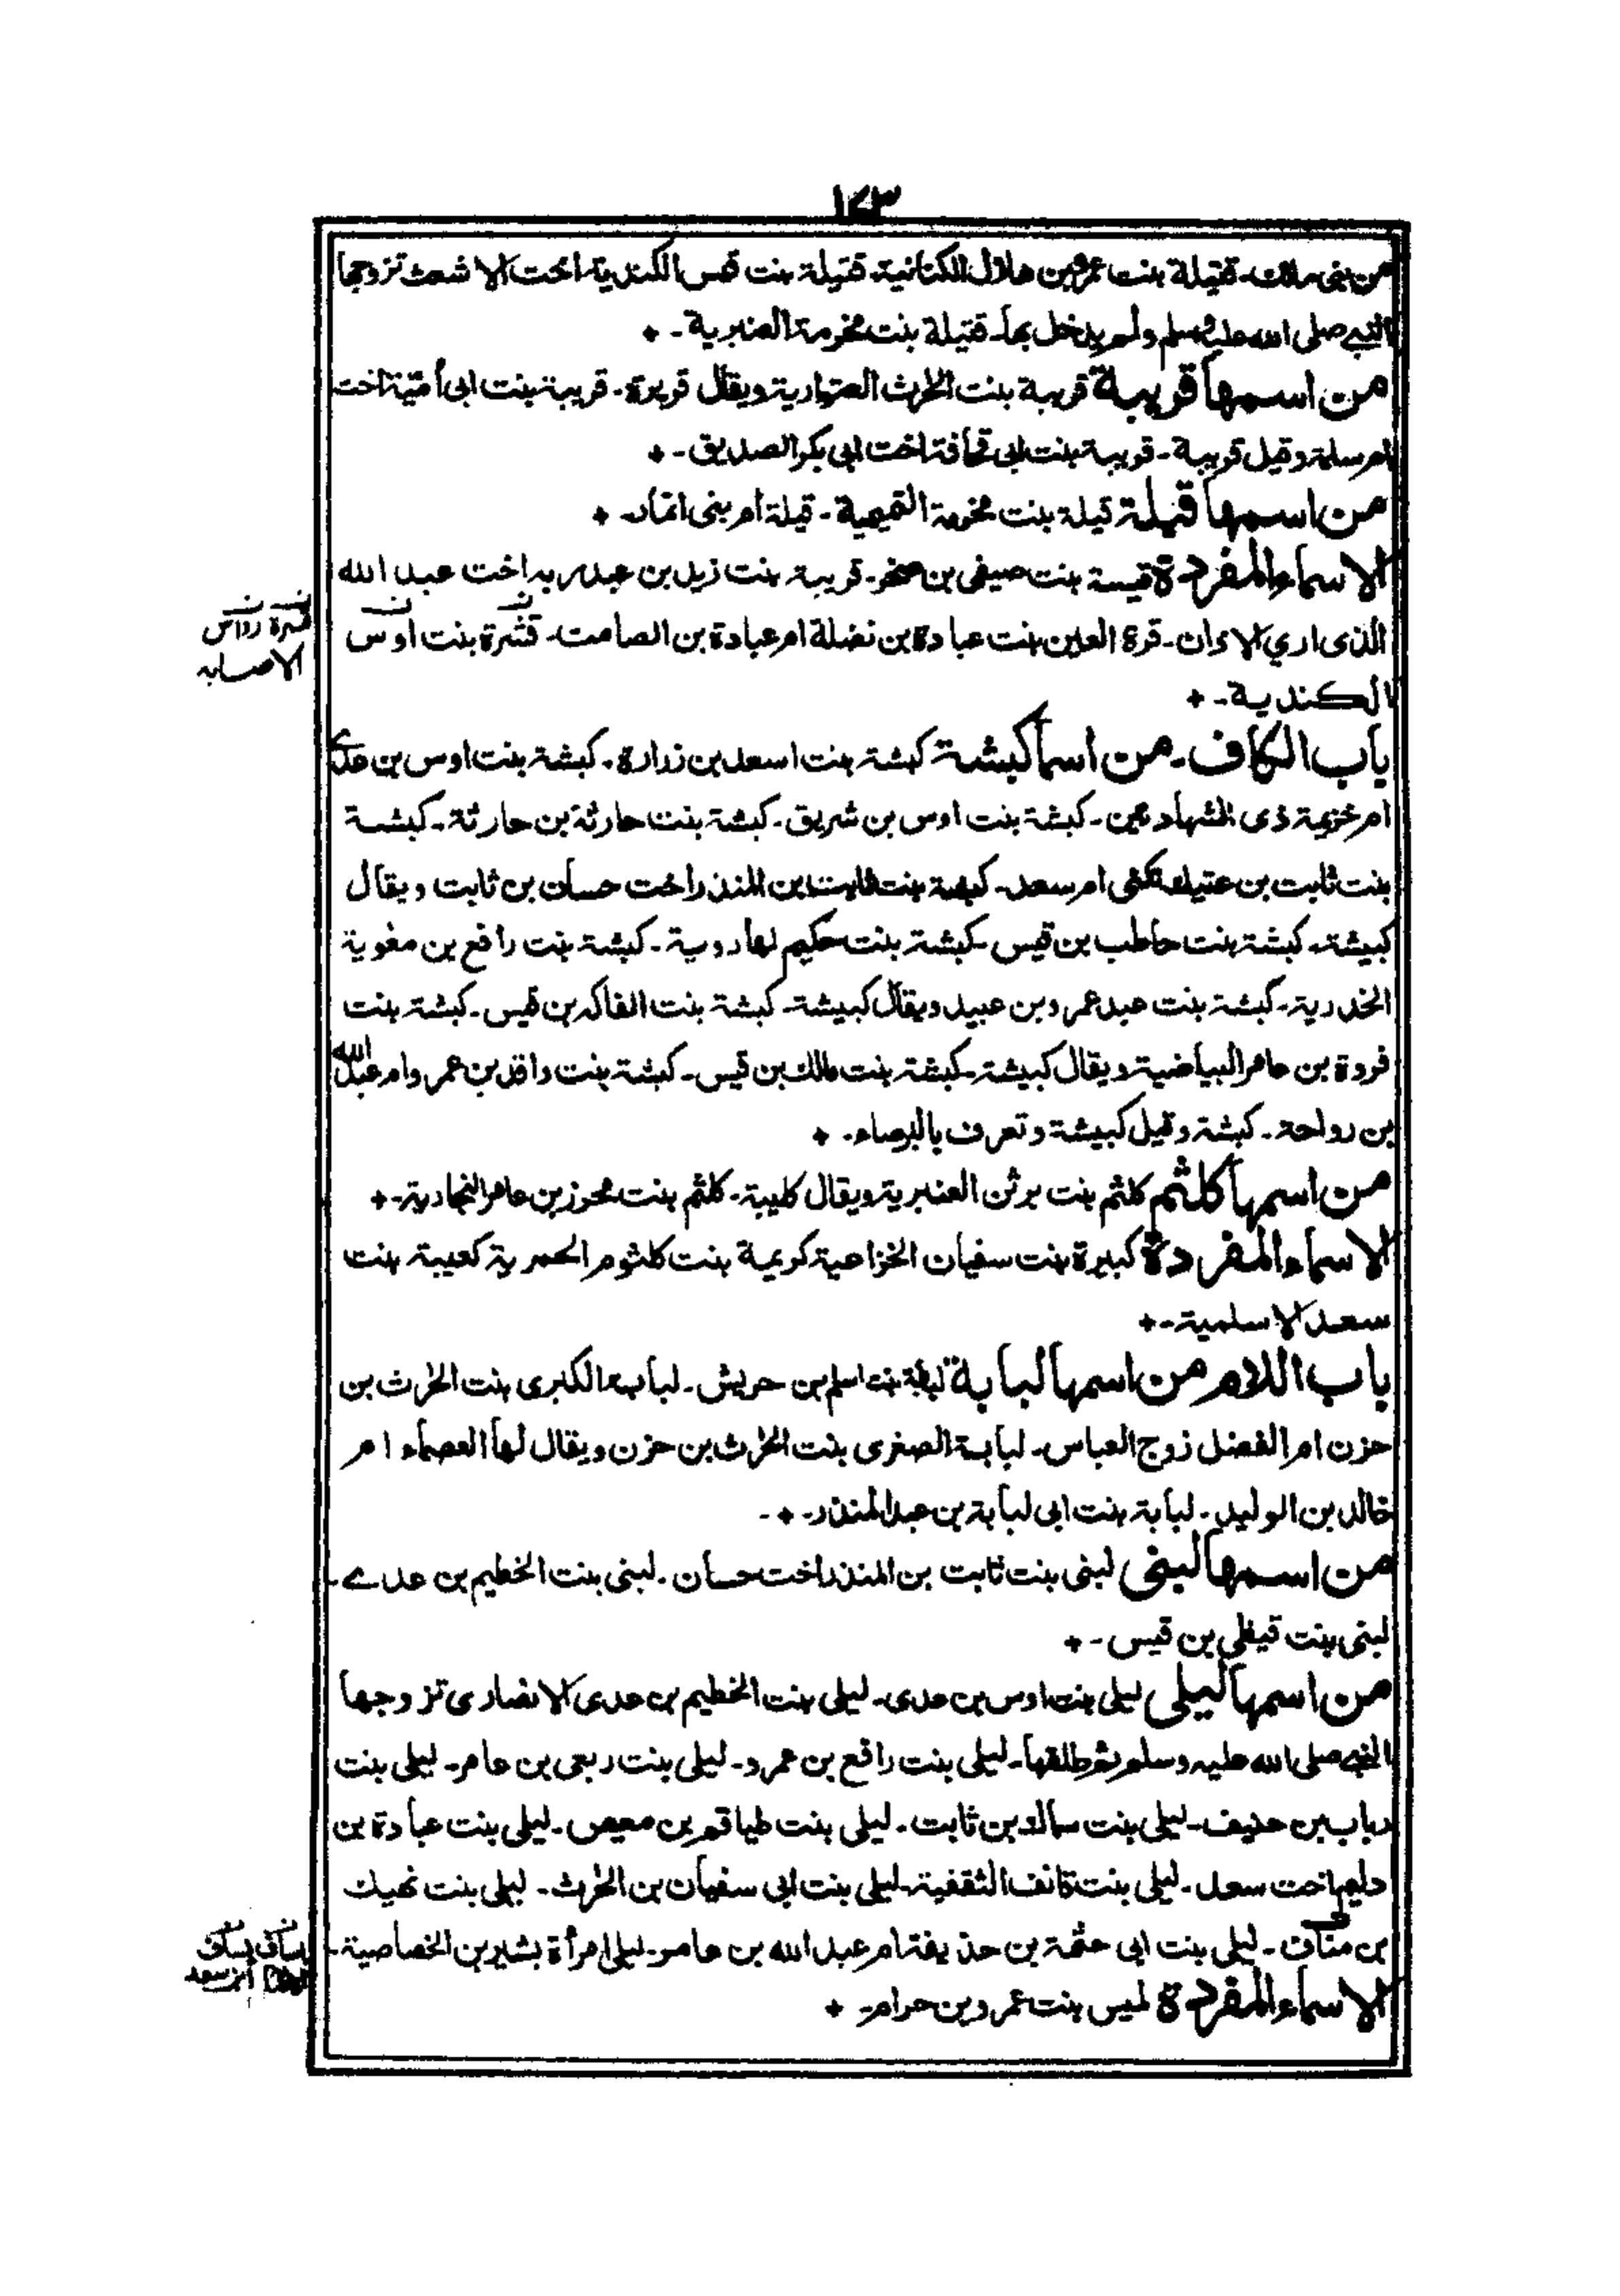 ١٤٣
من بنى مالك - قتيلة بنت عمرو بن هلال الكنانية - قتيلة بنت قيس الكندية اخت الاشعث تزوجها
النبي صلى الله عليه وسلم ولم يدخل بها - قتيلة بنت مخرمة العنبرية - +
من اسمها قريبة قريبة بنت الحٰرث العتوارية ويقال قريرة - قريبة بنت ابى أمية اخت
ام سلمة وقيل قريبة - قريبة بنت ابى قحافة اخت ابى بكر الصديق - +
من اسمها قيلة قيلة بنت مخرمة التميمية - قيلة ام بنى انمار - +
الاسماء المفردة قيسة بنت صيفى بن صخر - قريبة بنت زيد بن عبد ربه اخت عبد الله
الذى اري الاذان - قرة العين بنت عبادة بن نضلة ام عبادة بن الصامت - قثرة بنت اوس
الكندية - +
باب الكاف - من اسمها كبشة كبشة بنت اسعد بن زرارة - كبشة بنت اوس بن عدے
ام خزيمة ذى الشهادتين - كبشة بنت اوس بن شريق - كبشة بنت حارثة بن حارثة - كبشة
بنت ثابت بن عتيك تكنى ام سعد - كبشة بنت ثابت بن المنذر اخت حسان بن ثابت ويقال
كبيشة - كبشة بنت حاطب بن قيس - كبشة بنت حكيم لها روية - كبشة بنت رافع بن معٰوية
الخدرية - كبشة بنت عبد عمرو بن عبيد ويقال كبيشة - كبشة بنت الفاكه بن قيس - كبشة بنت
فروة بن عامر البياضية ويقال كبيشة - كبشة بنت مالك بن قيس - كبشة بنت واقد بن عمرو ام عبد الله
بن رواحة - كبشة وقيل كبيشة وتعرف بالبرصاء - +
من اسمها كلثم كلثم بنت برثن العنبرية ويقال كليبة - كلثم بنت محرز بن عامر النجارية - +
الاسماء المفردة كبيرة بنت سفيان الخزاعية كريمة بنت كلثوم الحميرية كعيبة بنت
سعد الاسلمية - +
باب اللام من اسمها لبابة لبابة بنت اسلم بن حريش - لبابة الكبرى بنت الحٰرث بن
حزن ام الفضل زوج العباس - لبابة الصغرى بنت الحٰرث بن حزن ويقال لها العصماء ام
خالد بن الوليد - لبابة بنت ابى لبابة بن عبد المنذر - + -
من اسمها لبنى لبنى بنت ثابت بن المنذر اخت حسان - لبنى بنت الخطيم بن عدے -
لبنى بنت قيظى بن قيس - +
من اسمها ليلى ليلى بنت اوس بن عدى - ليلى بنت الخطيم بن عدى الانصارى تزوجها
النبي صلى الله عليه وسلم ثم طلقها - ليلى بنت رافع بن عمرو - ليلى بنت ربعى بن عامر - ليلى بنت
رباب بن حنيف - ليلى بنت سماك بن ثابت - ليلى بنت طباقم بن معيص - ليلى بنت عبادة بن
دليم اخت سعد - ليلى بنت قانف الثقفية - ليلى بنت ابى سفيان بن الحٰرث - ليلى بنت نهيك
بن مناف - ليلى بنت ابى حثمة بن حذيفة ام عبد الله بن عامر - ليلى امرأة بشير بن الخصاصية -
الاسماء المفردة لميس بنت عمرو بن حرام - +
رواس
الاصابه
يساف
ابن سعد